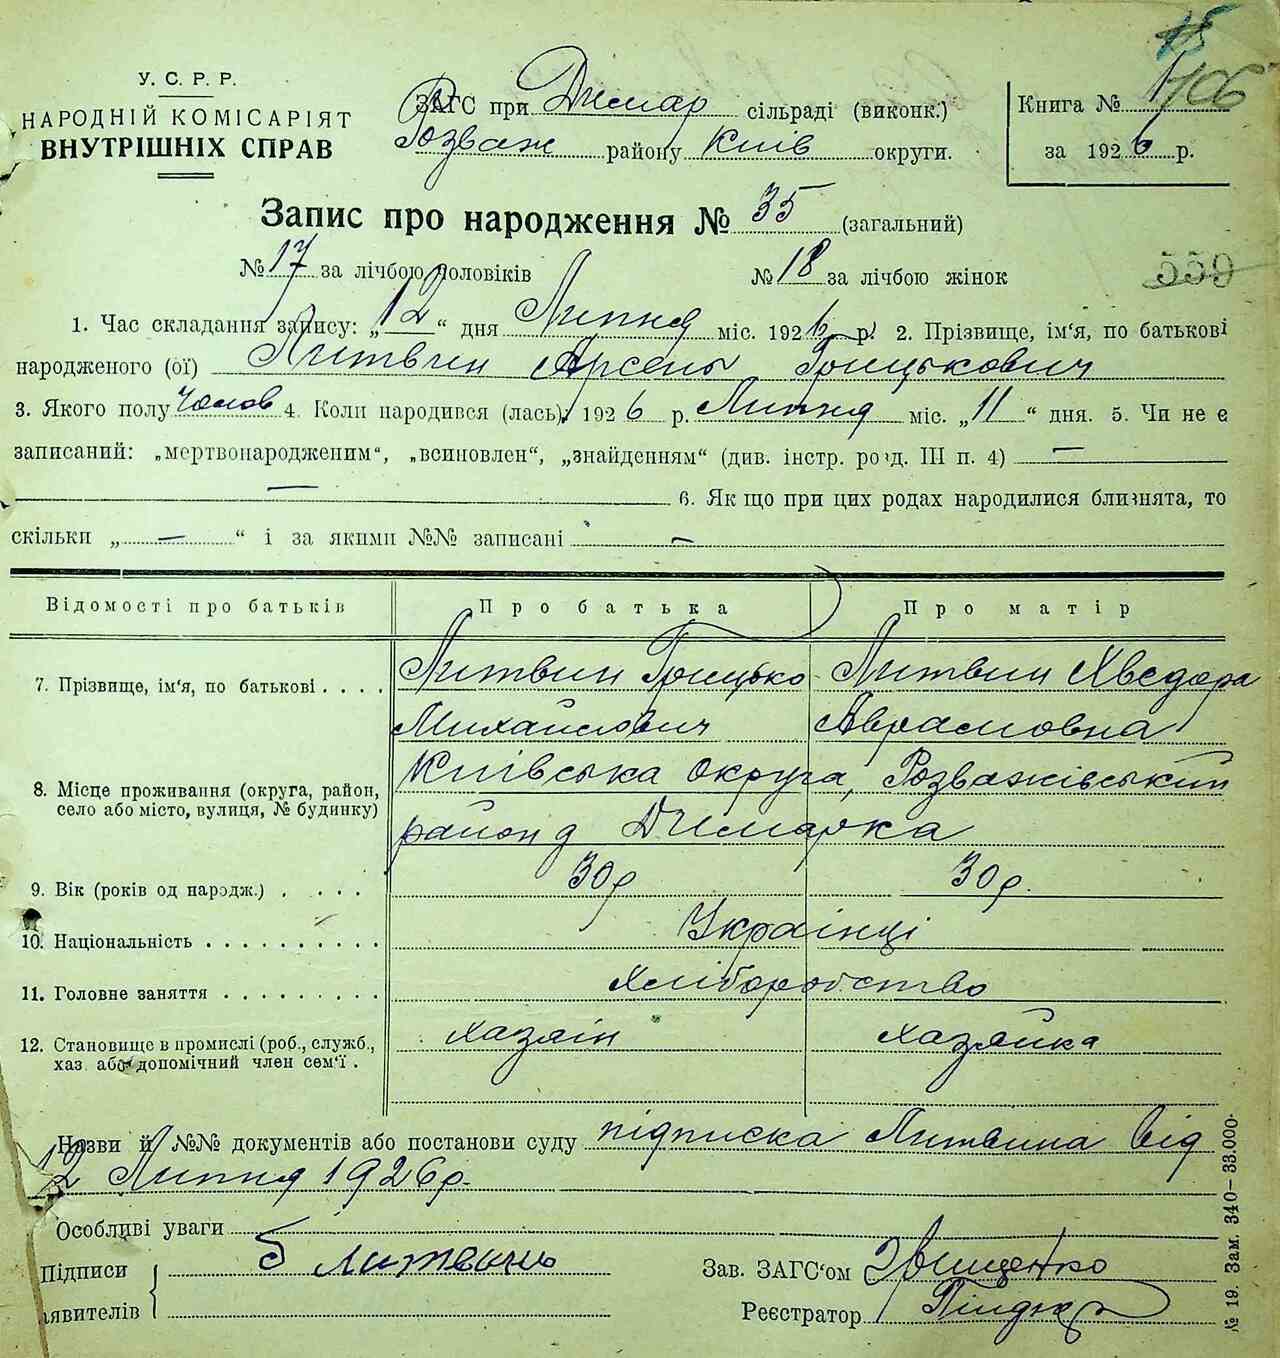 У. С. Р. Р.
НАРОДНІЙ КОМІСАРІЯТ
ВНУТРІШНІХ СПРАВ
ЗАГС при Димар сільраді (виконк.)
Розваж району Київ округи.
Книга № 1/106
за 1926 р.
Запис про народження № 35 (загальний)
№ 17 за лічбою чоловіків № 18 за лічбою жінок
559
1. Час складання запису: „12“ дня Липня міс. 1926 р. 2. Прізвище, ім'я, по батькові
народженого (ої) Литвин Арсень Грицькович
3. Якого полу Чолов 4. Коли народився (лась): 1926 р. Липня міс. „11“ дня. 5. Чи не є
записаний: „мертвонародженим“, „всиновлен“, „знайденням“ (див. інстр. розд. III п. 4) —
— 6. Як що при цих родах народилися близнята, то
скільки „—“ і за якими №№ записані —
Відомості про батьків Про батька Про матір
7. Прізвище, ім'я, по батькові . . . . Литвин Грицько Литвин Хведора
Михайлович Аврамовна
8. Місце проживання (округа, район, село або місто, вулиця, № будинку) Київська округа, Розважівський
район д Димарка
9. Вік (років од народж.) . . . . 30р 30р.
10. Національність . . . . . . . . . . Українці
11. Головне заняття . . . . . . . . . Хліборобство
12. Становище в промислі (роб., служб., хаз. або допомічний член сем'ї . хазяін хазяйка
Назви й №№ документів або постанови суду підписка Литвина від
12 Липня 1926р.
Особливі уваги
Підписи
заявителів
литвынь
Зав. ЗАГС'ом
Реєстратор
№ 19. Зам. 340–33.000.